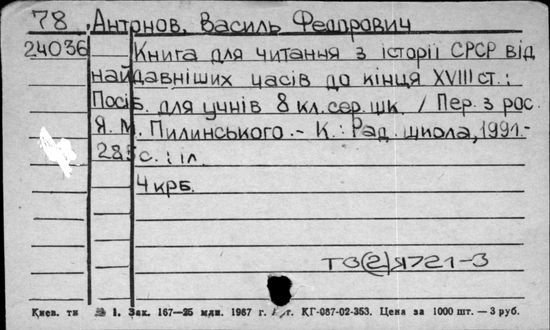 78 Антонов, Василь Федорович
24036 Книга для читання з історії СРСР від
найдавніших часів до кінця XVIII ст.:
Посіб. для учнів 8 кл. сер. шк. / Пер. з рос.
Я. М. Пилинського. - К.: Рад. школа, 1991.-
285 с.: іл.
4 крб.
Т3(2)я721-3
Київ. ти 1. Зак. 167—25 млн. 1987 г. КГ-087-02-353. Цена за 1000 шт. — 3 руб.